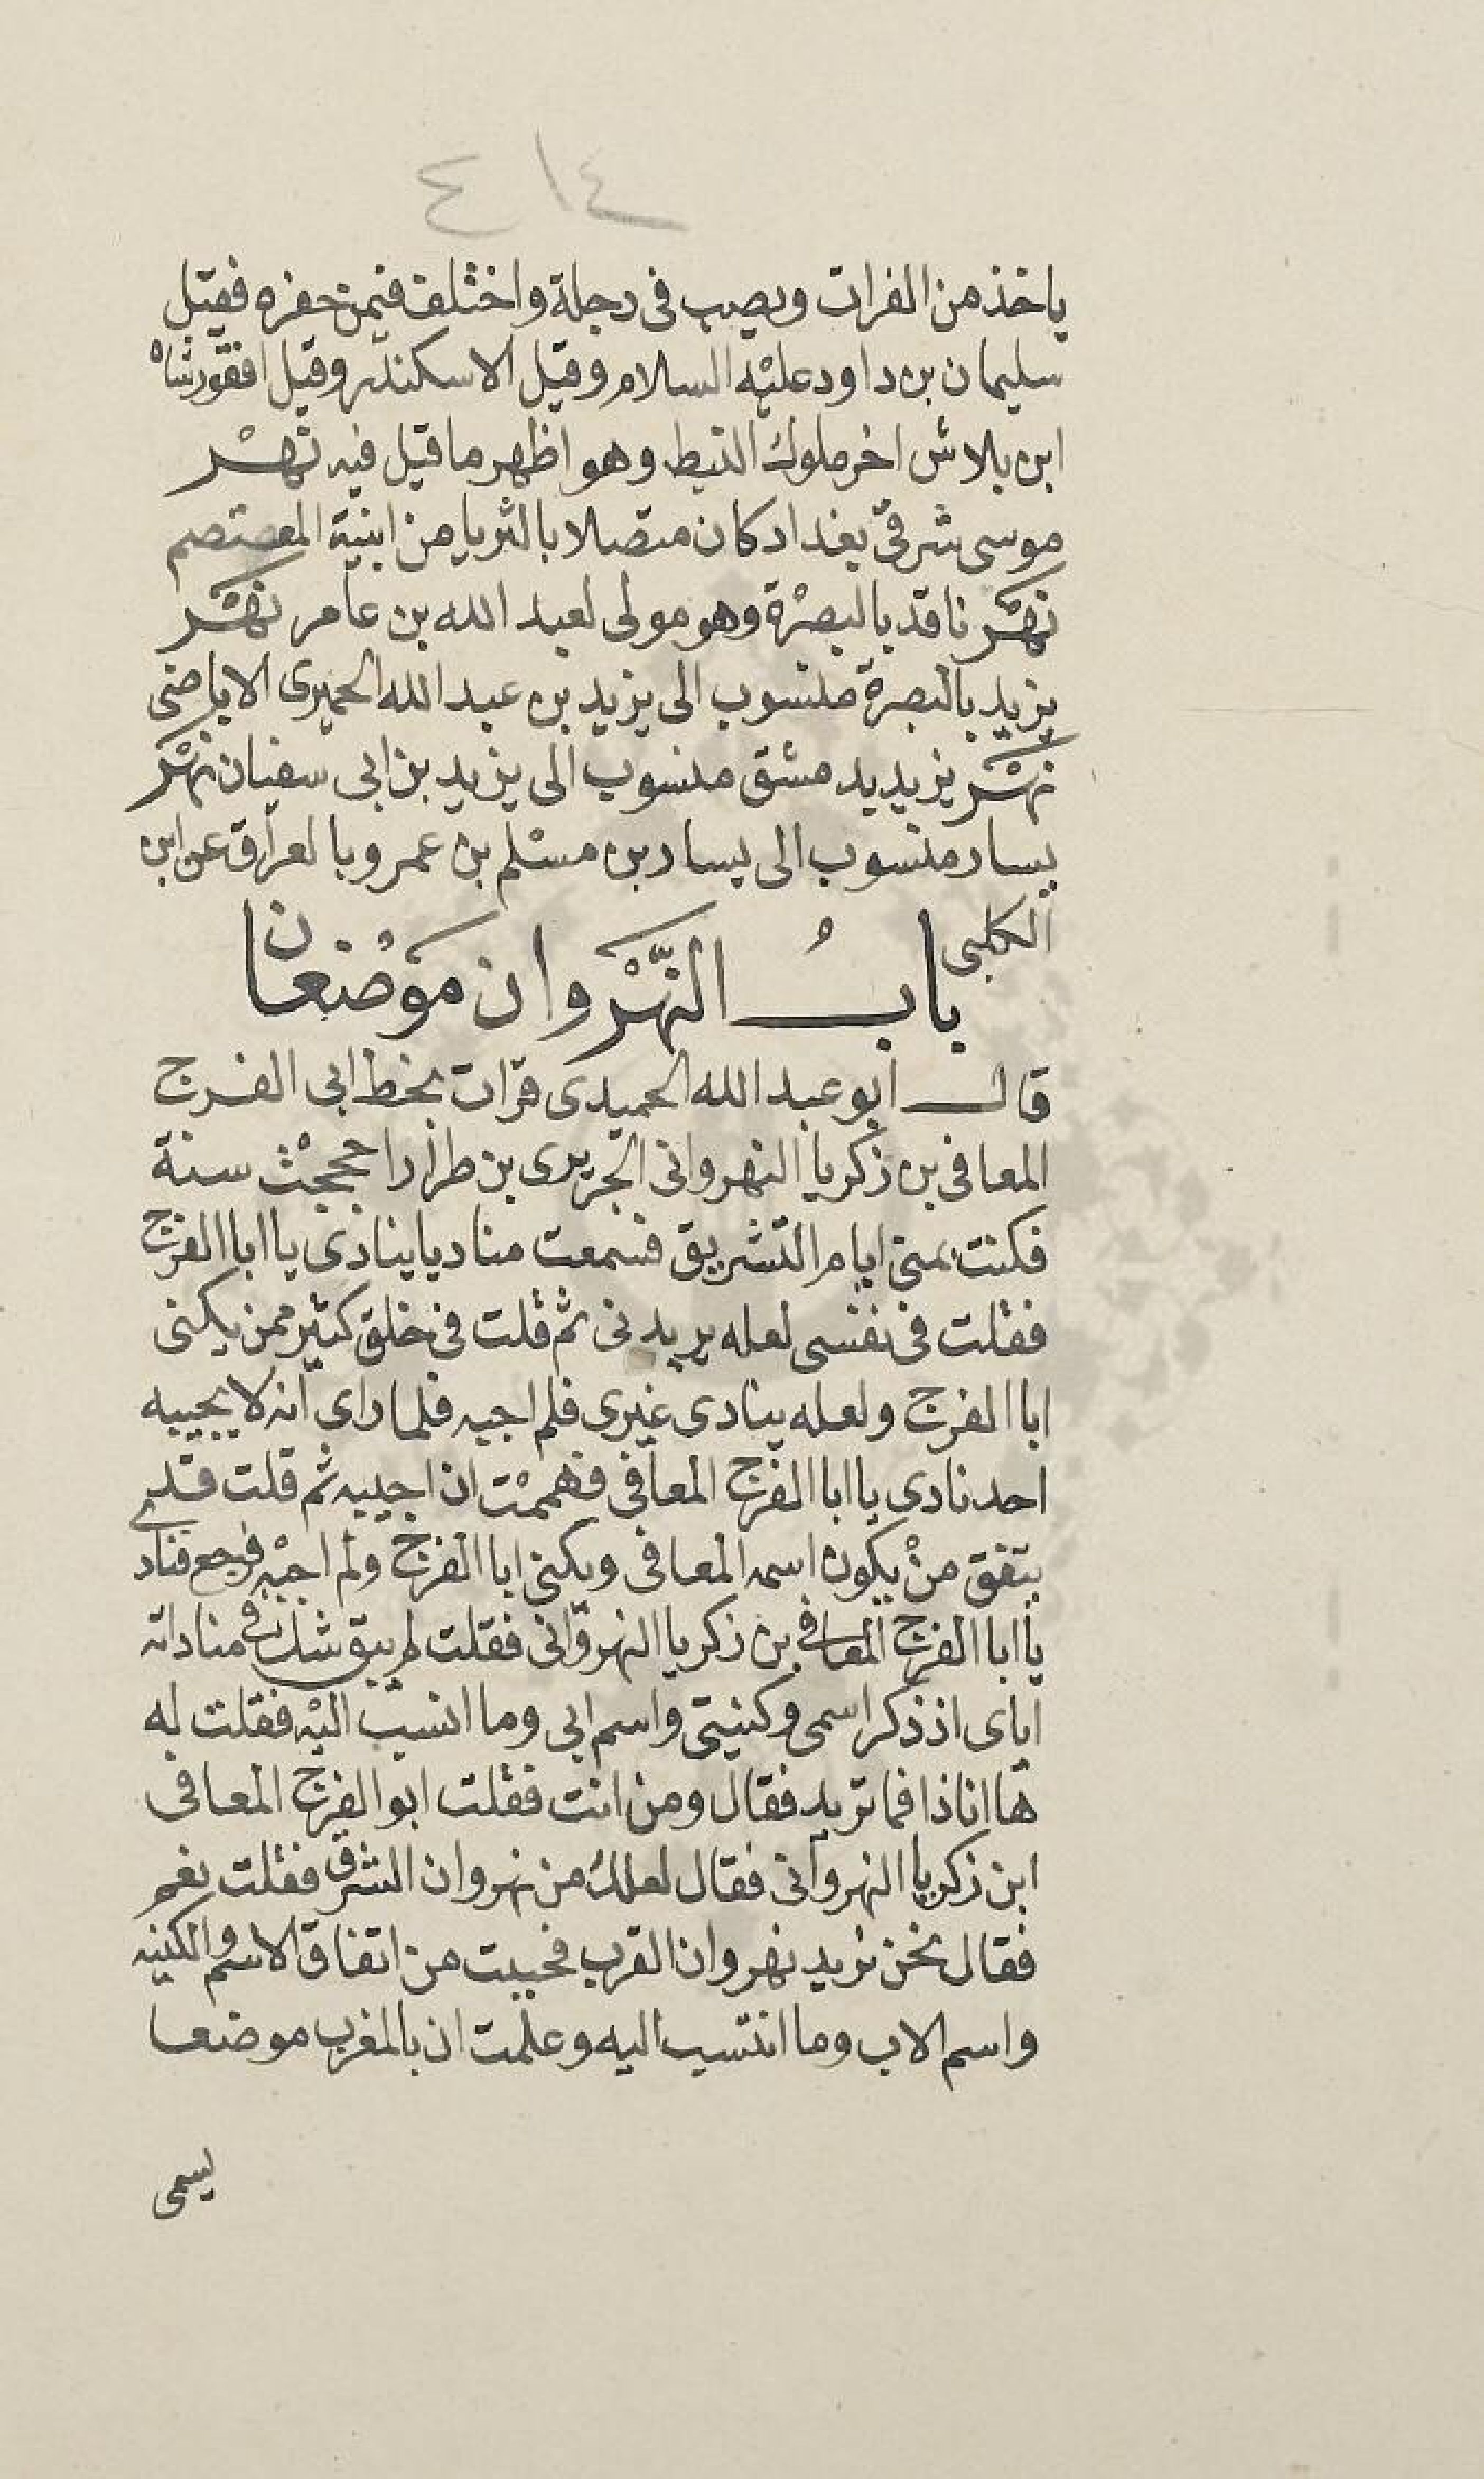 ٤١٤
ياخذ من الفرات ويصب فى دجلة واختلف فيمن حفره فقيل
سليمان بن داود عليه السلام وقيل الاسكندر وقيل افقورشاه
ابن بلاش اخر ملوك النبط وهو اظهر ما قيل فيه نهر
موسى شرقى بغداد كان متصلا بالثريا من ابنية المعتصم
نهر نافذ بالبصرة وهو مولى لعبد الله بن عامر نهر
يزيد بالبصرة منسوب الى يزيد بن عبد الله الحميرى الاباضى
نهر يزيد بدمشق منسوب الى يزيد بن ابى سفيان نهر
يسار منسوب الى يسار بن مسلم بن عمرو بالعراق عن ابن
الكلبى
باب النهروان موضعان
قال ابو عبد الله الحميدى قرات بخط ابى الفرج
المعافى بن زكريا النهروانى الجريرى بن طرارا حججت سنة
فكنت بمنى ايام التشريق فسمعت مناديا ينادى يا ابا الفرج
فقلت فى نفسى لعله يريدنى ثم قلت فى خلق كثير ممن يكنى
ابا الفرج ولعله ينادى غيرى فلم اجبه فلما راى انه لا يجيبه
احد نادى يا ابا الفرج المعافى فهممت ان اجيبه ثم قلت قد
يتفق من يكون اسمه المعافى ويكنى ابا الفرج ولم اجبه فرجع فنادى
يا ابا الفرج المعافى بن زكريا النهروانى فقلت لم يبق شك فى مناداته
اياى اذ ذكر اسمى وكنيتى واسم ابى وما انسب اليه فقلت له
ها انا ذا فما تريد فقال ومن انت فقلت ابو الفرج المعافى
ابن زكريا النهروانى فقال لعلك من نهروان الشرق فقلت نعم
فقال نحن نريد نهروان الغرب فعجبت من اتفاق الاسم والكنيه
واسم الاب وما انتسب اليه وعلمت ان بالمغرب موضعا
يسمى